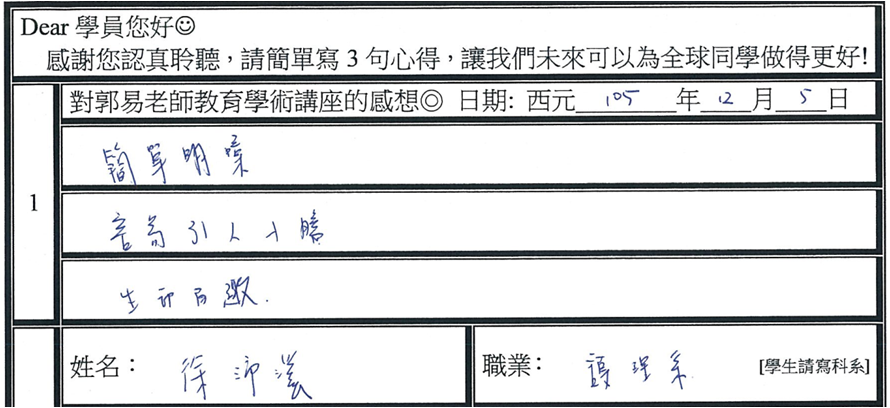 Dear 學員您好☺
感謝您認真聆聽，請簡單寫 3 句心得，讓我們未來可以為全球同學做得更好!
對郭易老師教育學術講座的感想◎ 日期: 西元 105 年 12 月 5 日
1
簡單明
引人入
生
姓名： 徐沛
職業： 護理系 [學生請寫科系]